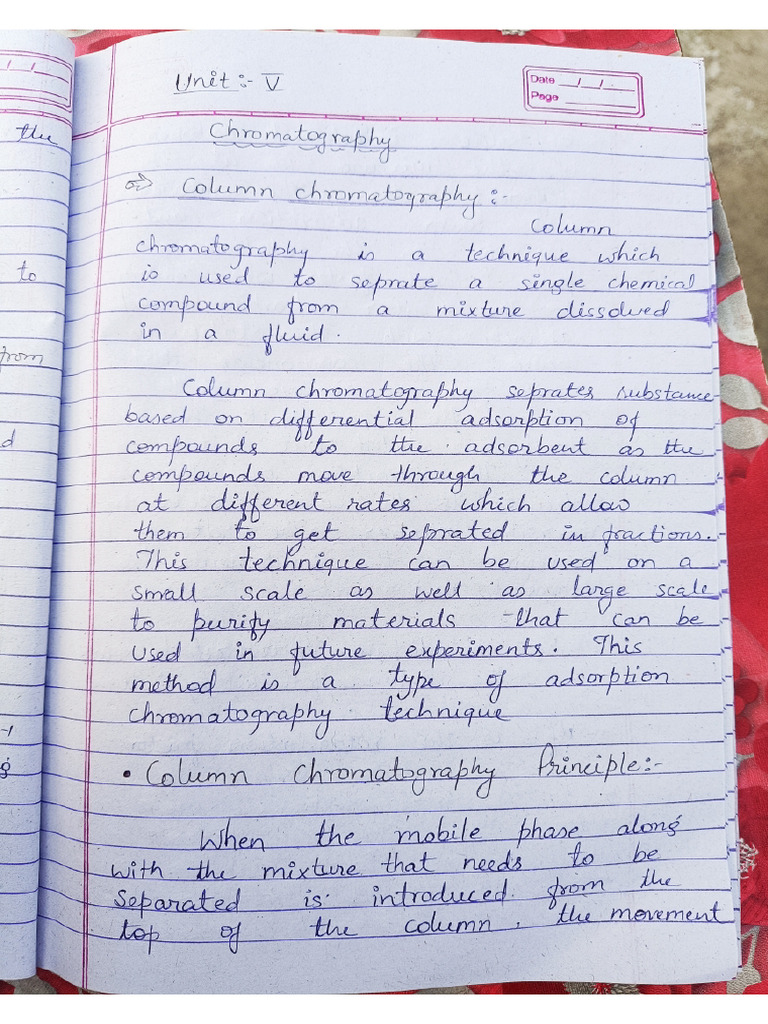 Unit :- V
Date __/__/__
Page ______
Chromatography
⇒ Column chromatography :-
Column
chromatography is a technique which
is used to seprate a single chemical
compound from a mixture dissolved
in a fluid.
Column chromatography seprates substance
based on differential adsorption of
compounds to the adsorbent as the
compounds move through the column
at different rates which allow
them to get seprated in fractions.
This technique can be used on a
small scale as well as large scale
to purify materials that can be
used in future experiments. This
method is a type of adsorption
chromatography technique
• Column Chromatography Principle:-
When the mobile phase along
with the mixture that needs to be
separated is introduced from the
top of the column, the movement
the
to
from
d